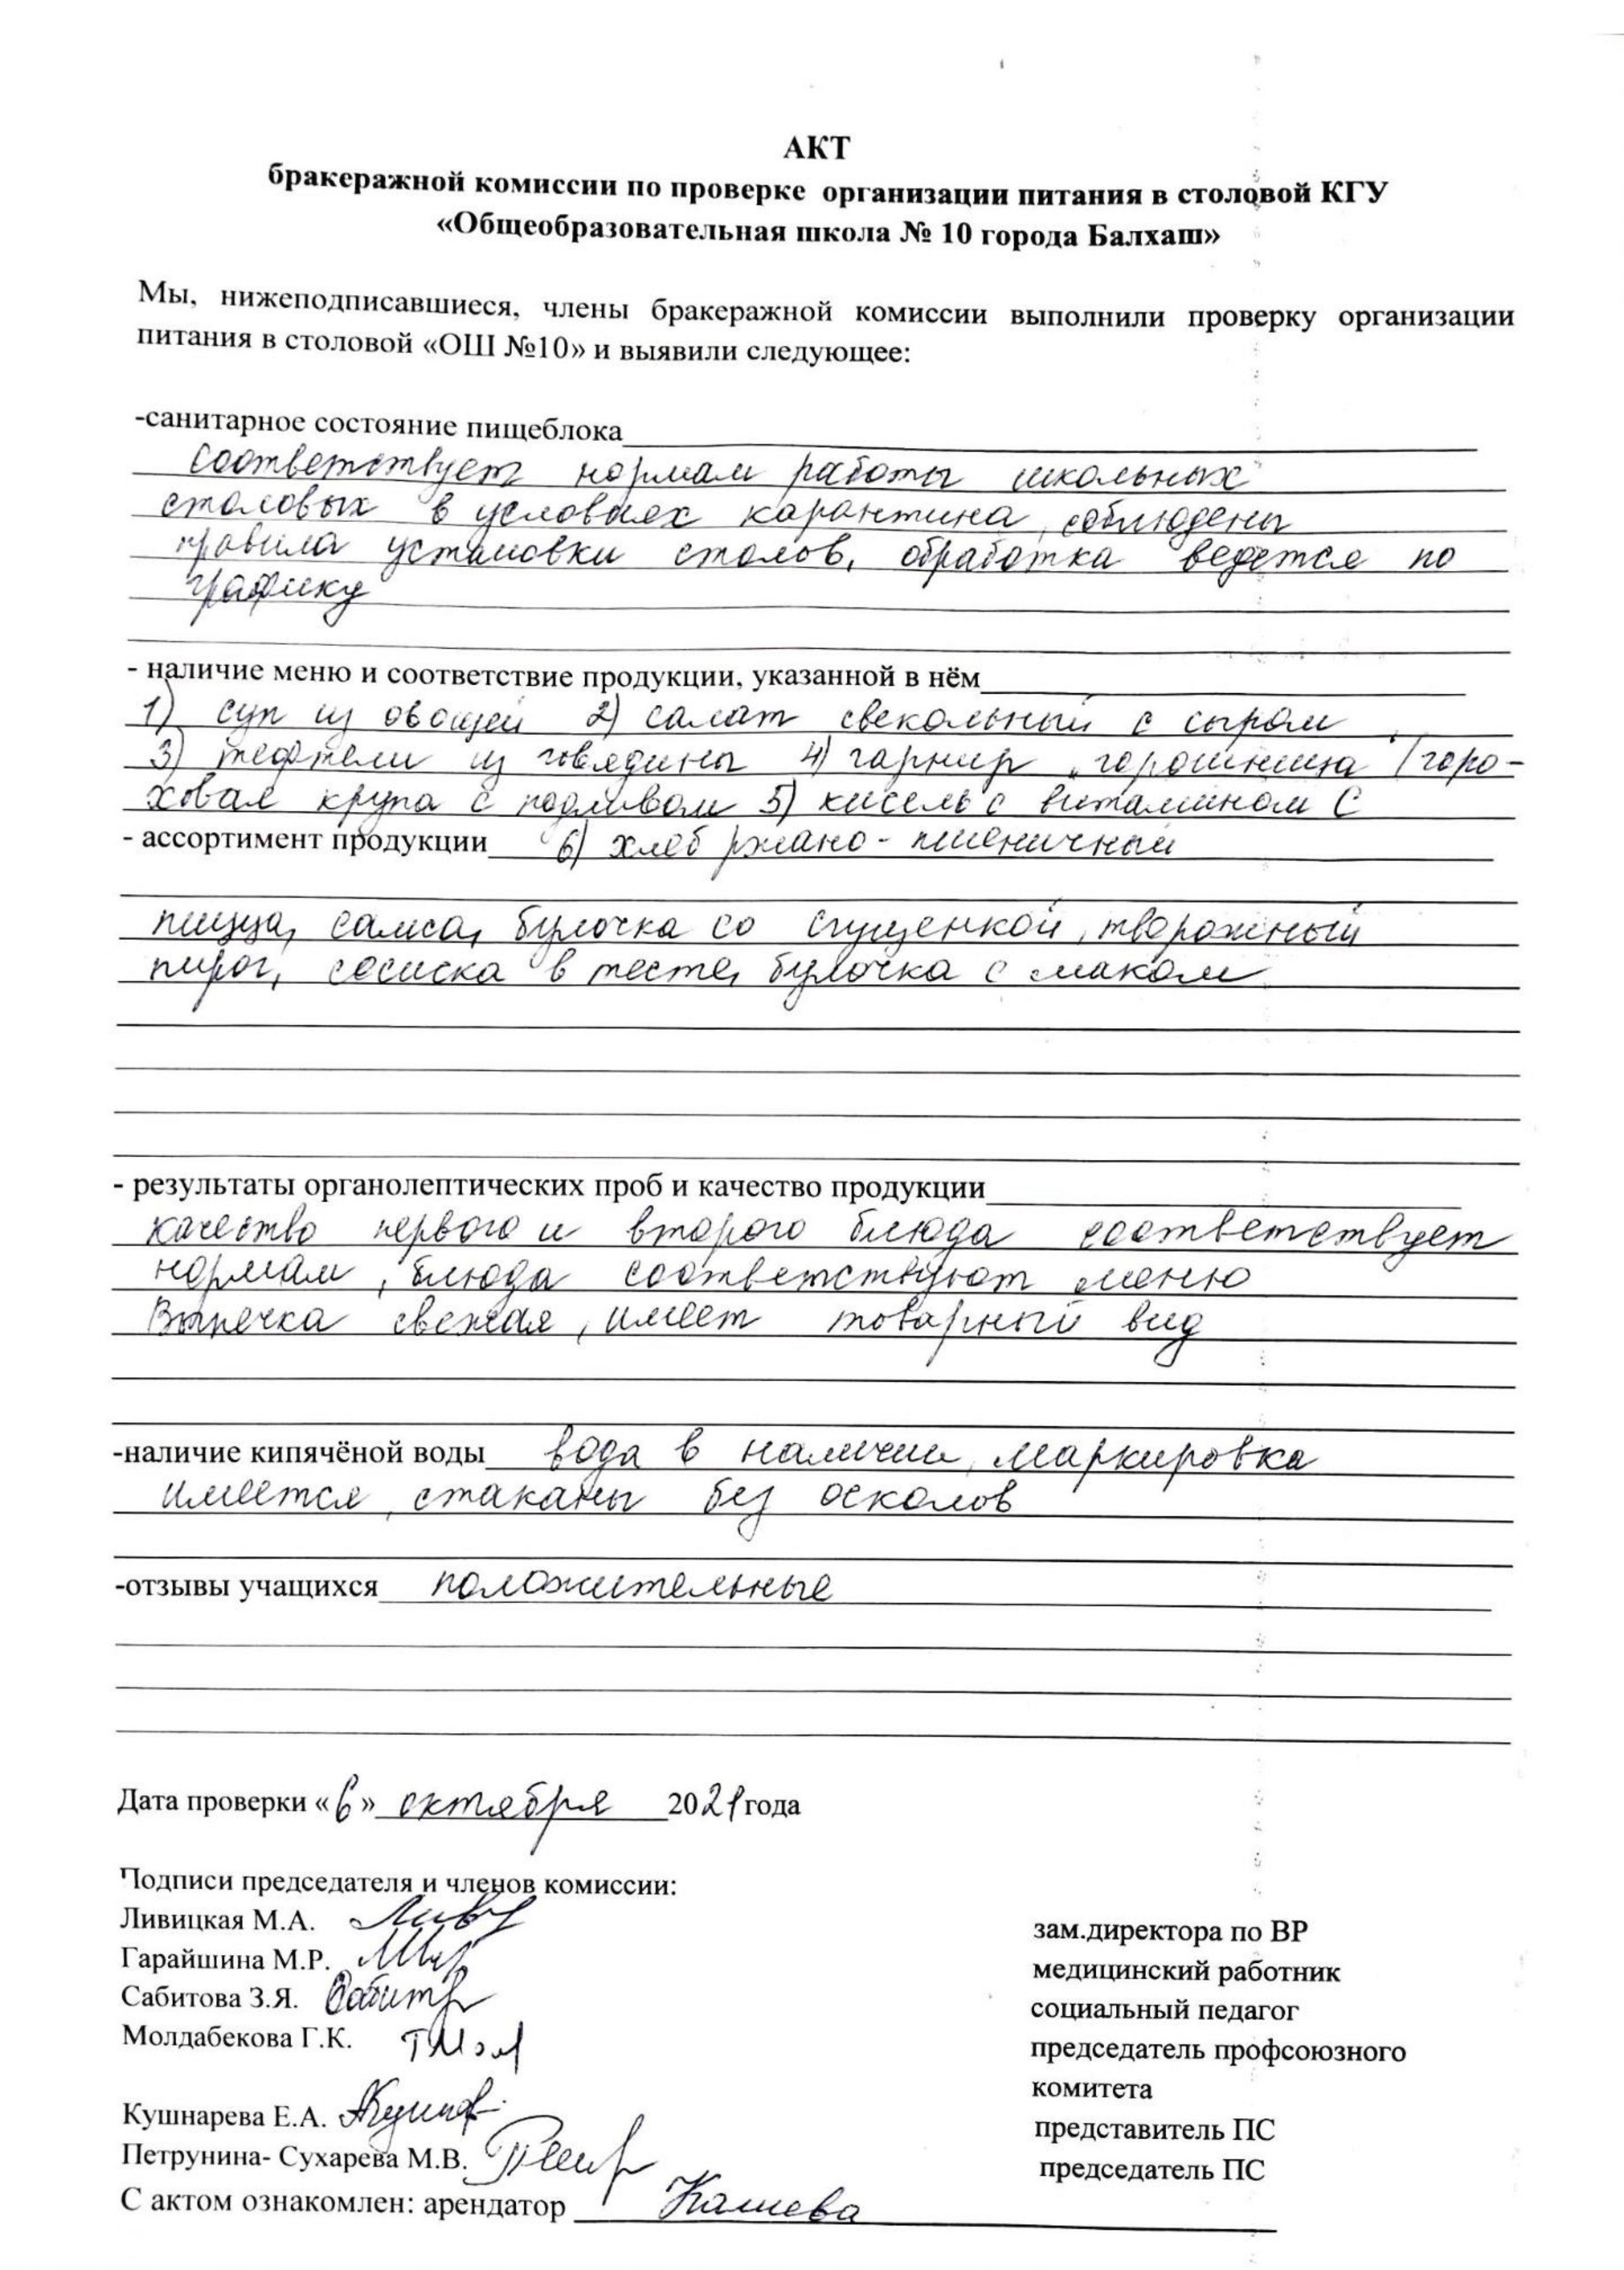 АКТ
бракеражной комиссии по проверке организации питания в столовой КГУ
«Общеобразовательная школа № 10 города Балхаш»
Мы, нижеподписавшиеся, члены бракеражной комиссии выполнили проверку организации
питания в столовой «ОШ №10» и выявили следующее:
-санитарное состояние пищеблока
соответствует нормам работы школьных
столовых в условиях карантина, соблюдены
правила установки столов, обработка ведется по
графику
- наличие меню и соответствие продукции, указанной в нём
1) суп из овощей 2) салат свекольный с сыром
3) тефтели из говядины 4) гарнир горошница (горо-
ховая крупа с подливом 5) кисель с витамином С
- ассортимент продукции 6) хлеб ржано-пшеничный
пицца, самса, булочка со сгущенкой, творожный
пирог, сосиска в тесте, булочка с маком
- результаты органолептических проб и качество продукции
качество первого и второго блюда соответствует
нормам, блюда соответствуют меню
Выпечка свежая, имеет товарный вид
-наличие кипячёной воды вода в наличии, маркировка
имеется, стаканы без осколов
-отзывы учащихся положительные
Дата проверки «6» октября 2021 года
Подписи председателя и членов комиссии:
Ливицкая М.А. зам.директора по ВР
Гарайшина М.Р. медицинский работник
Сабитова З.Я. социальный педагог
Молдабекова Г.К. председатель профсоюзного
комитета
Кушнарева Е.А. представитель ПС
Петрунина- Сухарева М.В. председатель ПС
С актом ознакомлен: арендатор